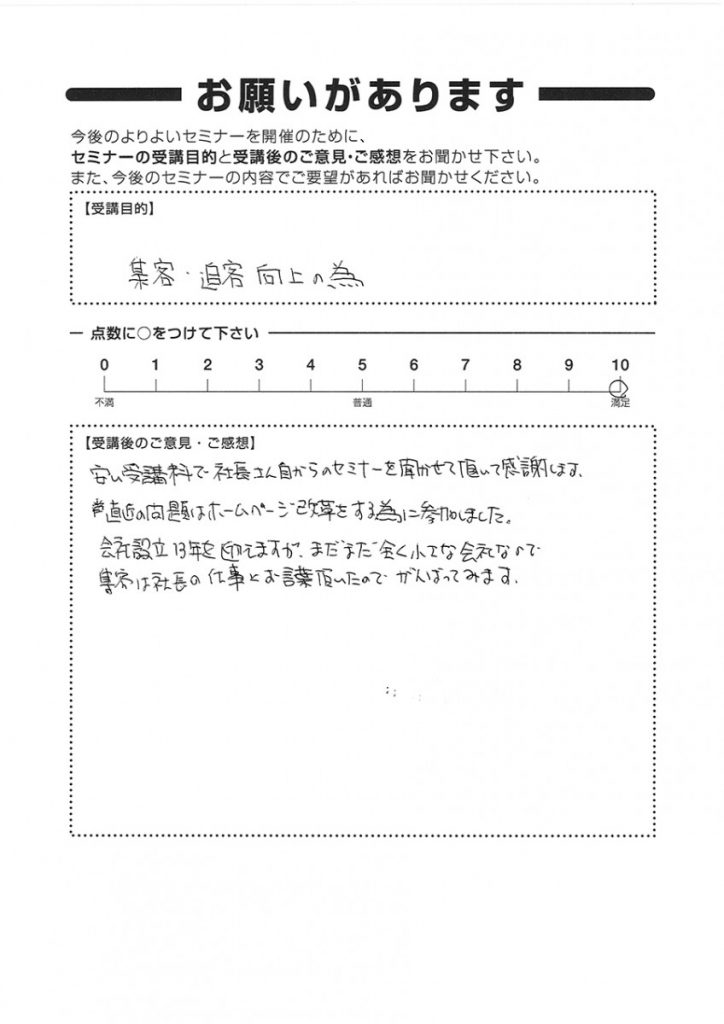 お願いがあります
今後のよりよいセミナーを開催のために、
セミナーの受講目的と受講後のご意見・ご感想をお聞かせ下さい。
また、今後のセミナーの内容でご要望があればお聞かせください。
【受講目的】
集客・追客 向上の為
点数に○をつけて下さい
0 1 2 3 4 5 6 7 8 9 10
不満 普通 満足
【受講後のご意見・ご感想】
安い受講料で社長さん自からのセミナーを聞かせて頂いて感謝します。
直近の問題はホームページ改革をする為に参加しました。
会社設立13年を迎えますが、まだまだ全く小さな会社なので
集客は社長の仕事とお言葉頂いたのでがんばってみます。